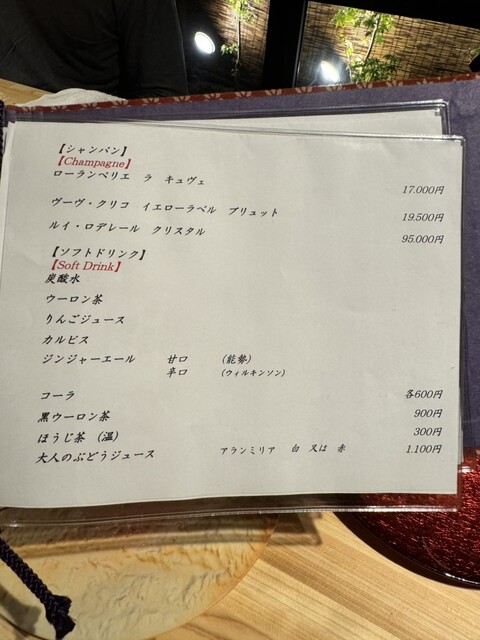 【シャンパン】
【Champagne】
ローランペリエ ラ キュヴェ 17.000円
ヴーヴ・クリコ イエローラベル ブリュット 19.500円
ルイ・ロデレール クリスタル 95.000円
【ソフトドリンク】
【Soft Drink】
炭酸水
ウーロン茶
りんごジュース
カルピス
ジンジャーエール 甘口 (能勢)
辛口 (ウィルキンソン)
コーラ 各600円
黒ウーロン茶 900円
ほうじ茶 (温) 300円
大人のぶどうジュース アランミリア 白 又は 赤 1.100円